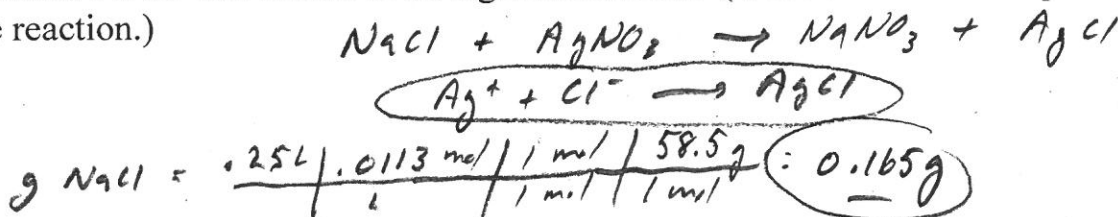 e reaction.)
NaCl + AgNO₃ → NaNO₃ + AgCl
Ag⁺ + Cl⁻ → AgCl
g NaCl = .25L | .0113 mol | 1 mol | 58.5g = 0.165g
L | 1 mol | 1 mol